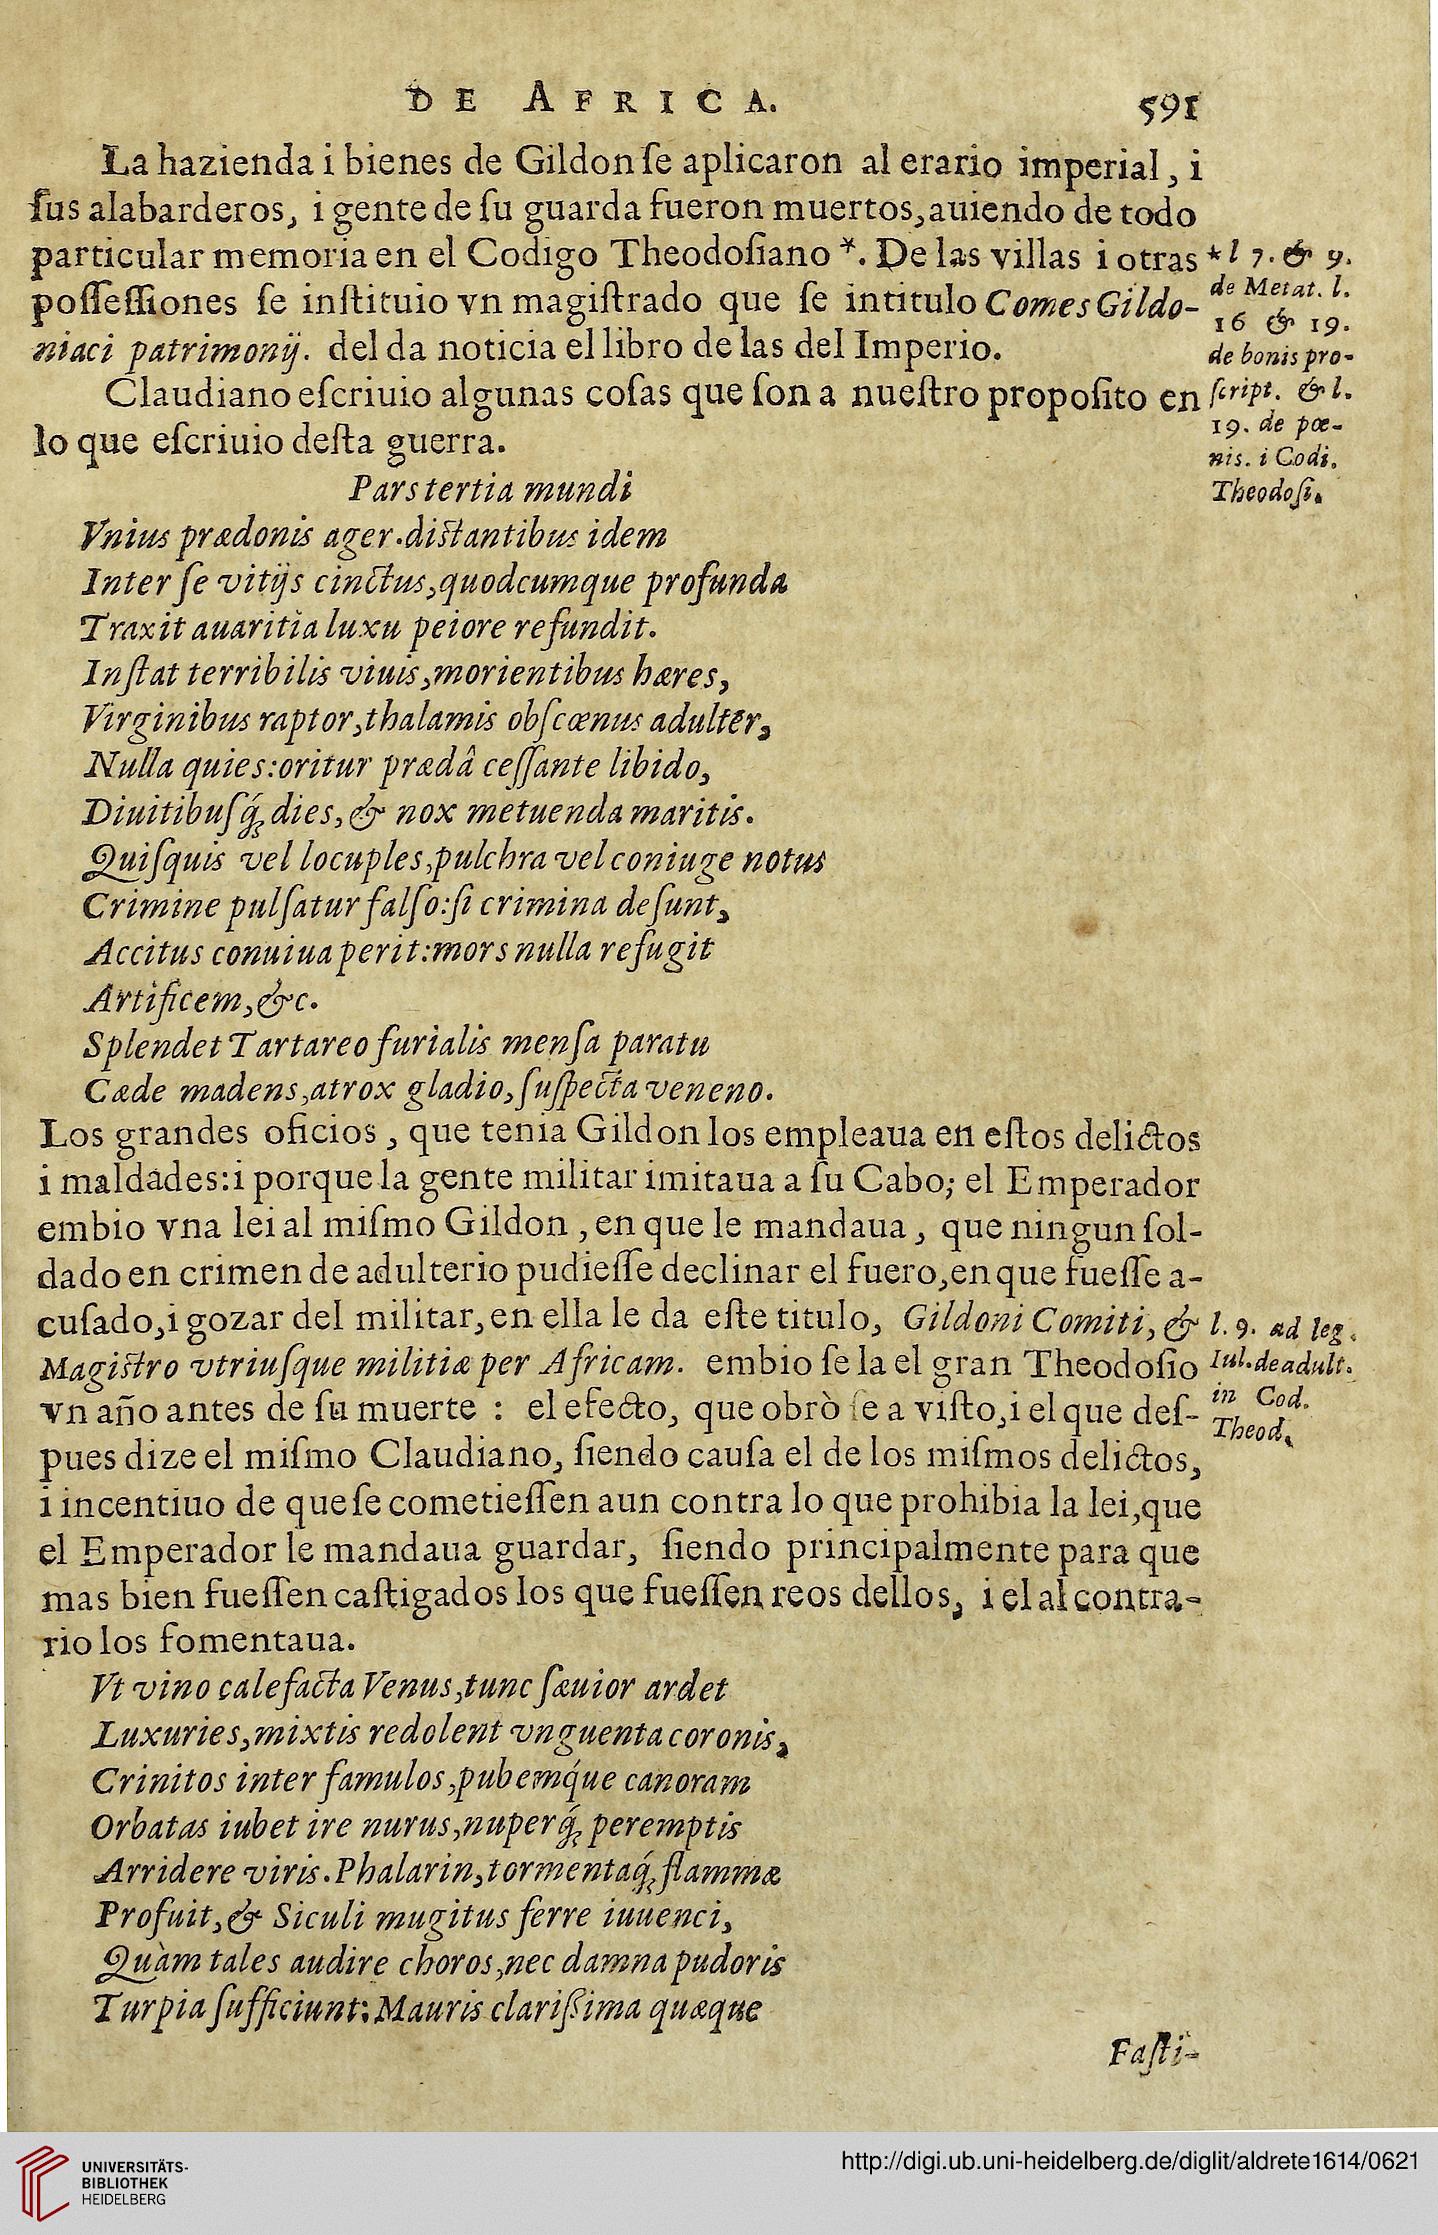 DE AFRICA. 591
La hazienda i bienes de Gildon ſe aplicaron al erario imperial, i
ſus alabarderos, i gente de ſu guarda fueron muertos, auiendo de todo
particular memoria en el Codigo Theodoſiano *. De las villas i otras
poſſeſſiones ſe inſtituio vn magiſtrado que ſe intitulo Comes Gildo-
niaci patrimonij. del da noticia el libro de las del Imperio.
Claudiano eſcriuio algunas coſas que ſon a nueſtro propoſito en
lo que eſcriuio deſta guerra.
* l 7. & 9.
de Metat. l.
16 & 19.
de bonis pro-
ſcript. & l.
19. de pœ-
nis. i Codi.
Theodoſi.
Pars tertia mundi
Vnius prædonis ager. diſtantibus idem
Inter ſe vitijs cinctus, quodcumque profunda
Traxit auaritia luxu peiore refundit.
Inſtat terribilis viuis, morientibus hæres,
Virginibus raptor, thalamis obſcœnus adulter,
Nulla quies: oritur prædâ ceſſante libido,
Diuitibuſq́; dies, & nox metuenda maritis.
Quiſquis vel locuples, pulchra vel coniuge notus
Crimine pulſatur falſo: ſi crimina deſunt,
Accitus conuiua perit: mors nulla refugit
Artificem, &c.
Splendet Tartareo furialis menſa paratu
Cæde madens, atrox gladio, ſuſpecta veneno.
Los grandes oficios, que tenia Gildon los empleaua en eſtos delictos
i maldades: i porque la gente militar imitaua a ſu Cabo; el Emperador
embio vna lei al miſmo Gildon, en que le mandaua, que ningun ſol-
dado en crimen de adulterio pudieſſe declinar el fuero, en que fueſſe a-
cuſado, i gozar del militar, en ella le da eſte titulo, Gildoni Comiti, &
Magiſtro vtriuſque militiæ per Africam. embio ſe la el gran Theodoſio
vn año antes de ſu muerte : el efecto, que obrò ſe a viſto, i el que deſ-
pues dize el miſmo Claudiano, ſiendo cauſa el de los miſmos delictos,
i incentiuo de que ſe cometieſſen aun contra lo que prohibia la lei, que
el Emperador le mandaua guardar, ſiendo principalmente para que
mas bien fueſſen caſtigados los que fueſſen reos dellos, i el al contra-
rio los fomentaua.
l. 9. ad leg.
Iul. de adult.
in Cod.
Theod.
Vt vino calefacta Venus, tunc ſæuior ardet
Luxuries, mixtis redolent vnguenta coronis,
Crinitos inter famulos, pubemq́ue canoram
Orbatas iubet ire nurus, nuperq́; peremptis
Arridere viris. Phalarin, tormentaq́; flammæ
Profuit, & Siculi mugitus ferre iuuenci,
Quàm tales audire choros, nec damna pudoris
Turpia ſufficiunt: Mauris clariſsima quæque
Faſti-
UNIVERSITÄTS-
BIBLIOTHEK
HEIDELBERG
http://digi.ub.uni-heidelberg.de/diglit/aldrete1614/0621